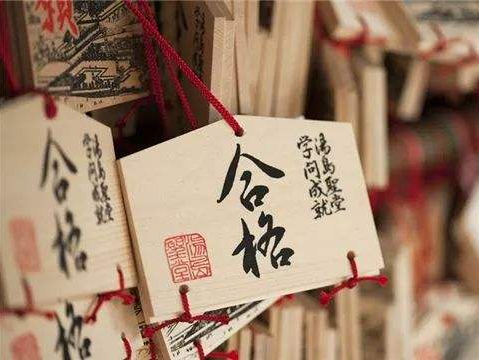 湯島聖堂
学問成就
合格
湯島聖堂
学問成就
合格
合格